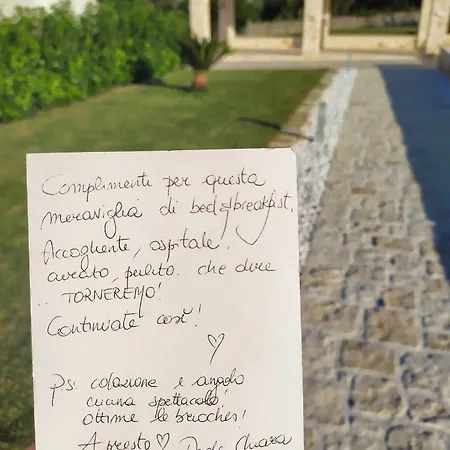 Complimenti per questa
meraviglia di bed&breakfast.
Accogliente, ospitale,
curato, pulito.. che dire
.. TORNEREMO!
Continuate così!
♡
Ps: colazione e angolo
cucina spettacolo!
Ottime le brioches!
A presto ♡ Chiara